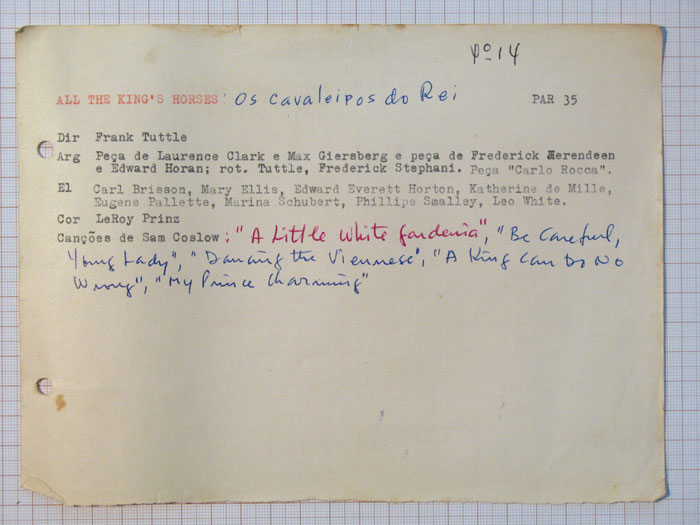 14
ALL THE KING'S HORSES Os Cavaleiros do Rei PAR 35
Dir Frank Tuttle
Arg Peça de Laurence Clark e Max Giersberg e peça de Frederick Herendeen
e Edward Horan; rot. Tuttle, Frederick Stephani. Peça "Carlo Rocca".
El Carl Brisson, Mary Ellis, Edward Everett Horton, Katherine de Mille,
Eugene Pallette, Marina Schubert, Phillips Smalley, Leo White.
Cor LeRoy Prinz
Canções de Sam Coslow: "A Little White Gardenia", "Be Careful,
Young Lady", "Dancing the Viennese", "A King Can Do No
Wrong", "My Prince Charming"